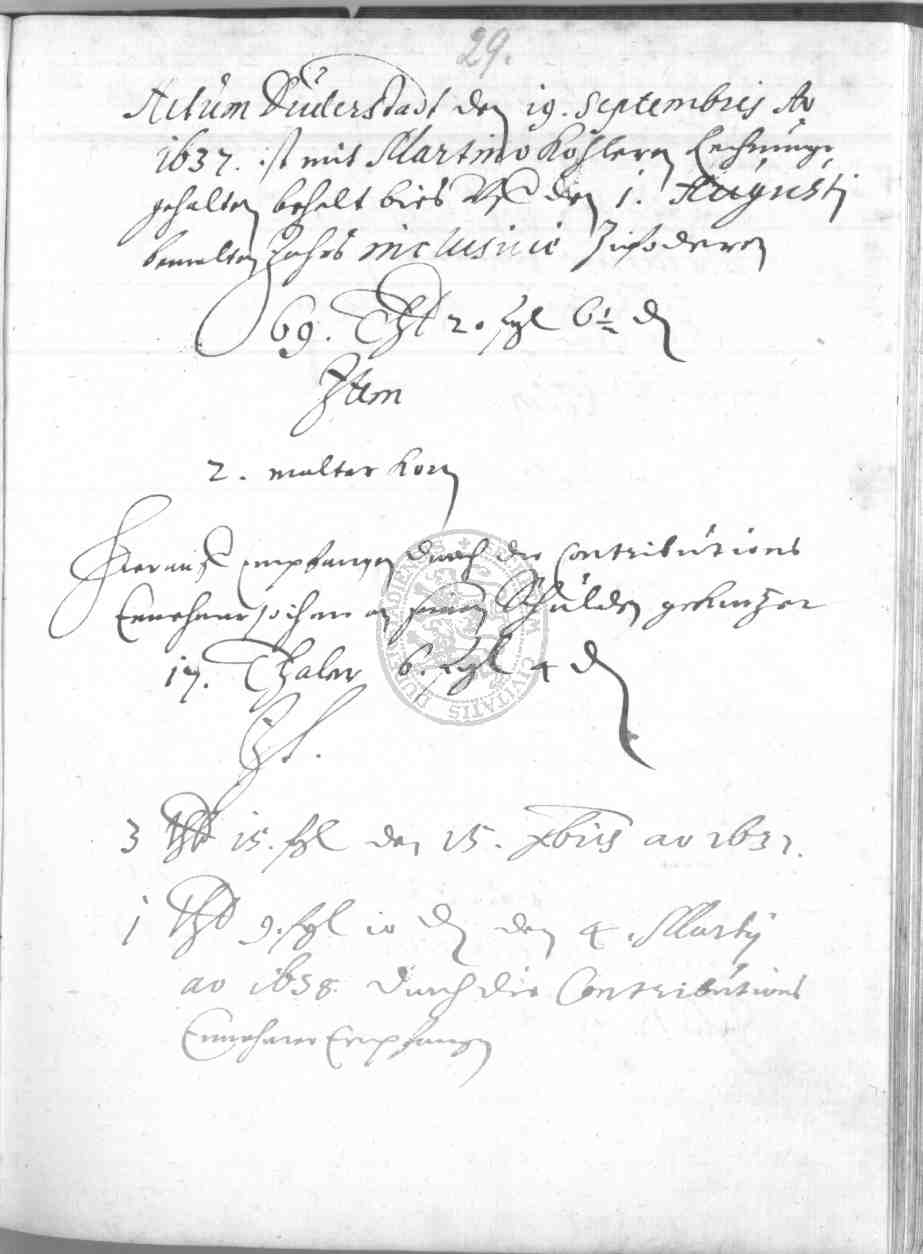 29.
Actum Duderstadt den 19. Septembris Ao
1637. ist mit Martino Kohleren Rechnung
gehalten behelt bies Vf den 1. Augusti
bemelten Jahrs inclusive Zufoderen
69. Thl 2. sgl 6½ d
Item
2. malter Korn
Hierauf empfangen durch die Contributions
Einnehmer seinen Schulden
17. Thaler 6. sgl 4 d
It.
3 thl 15. sgl den 15. xbris ao 1637.
1 thl 9. sgl 10 d den 4. Martij
ao 1638. durch die Contributions
Einnehmer Empfangen